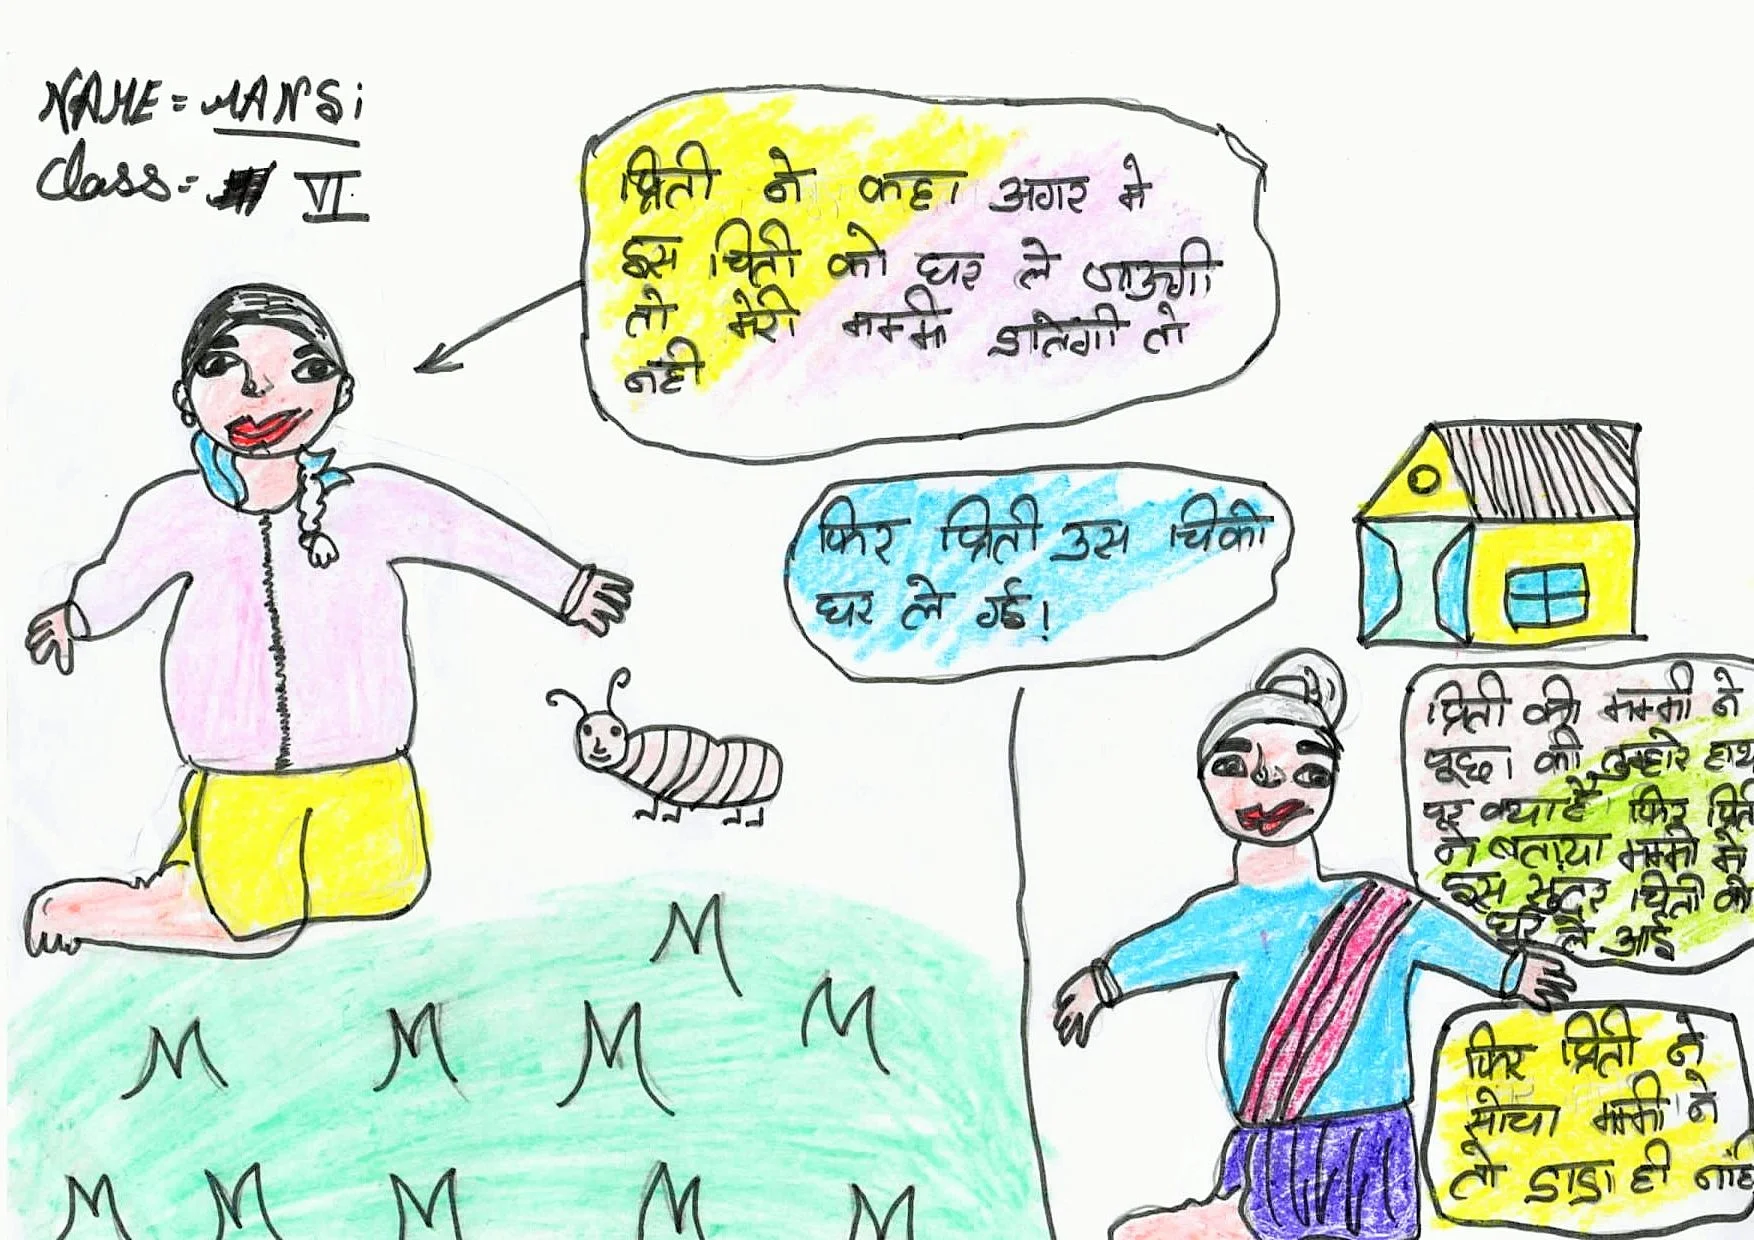 NAME = MANSi
Class = VI
प्रिती ने कहा अगर मे
इस चिती को घर ले जाऊगी
तो मेरी मम्मी डातेगी तो
नही
फिर प्रिती उस चिकी
घर ले गई!
प्रिती की मम्मी ने
पूछा की तुम्हारे हाथ
पर क्या है फिर
ने बताया मम्मी मे
इस सूदर चिती को
घर ले आई
फिर प्रिती ने
सोचा मम्मी ने
तो डाडा ही